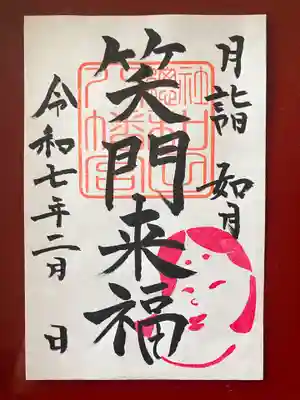 月詣 如月
笑門来福
令和七年二月 日